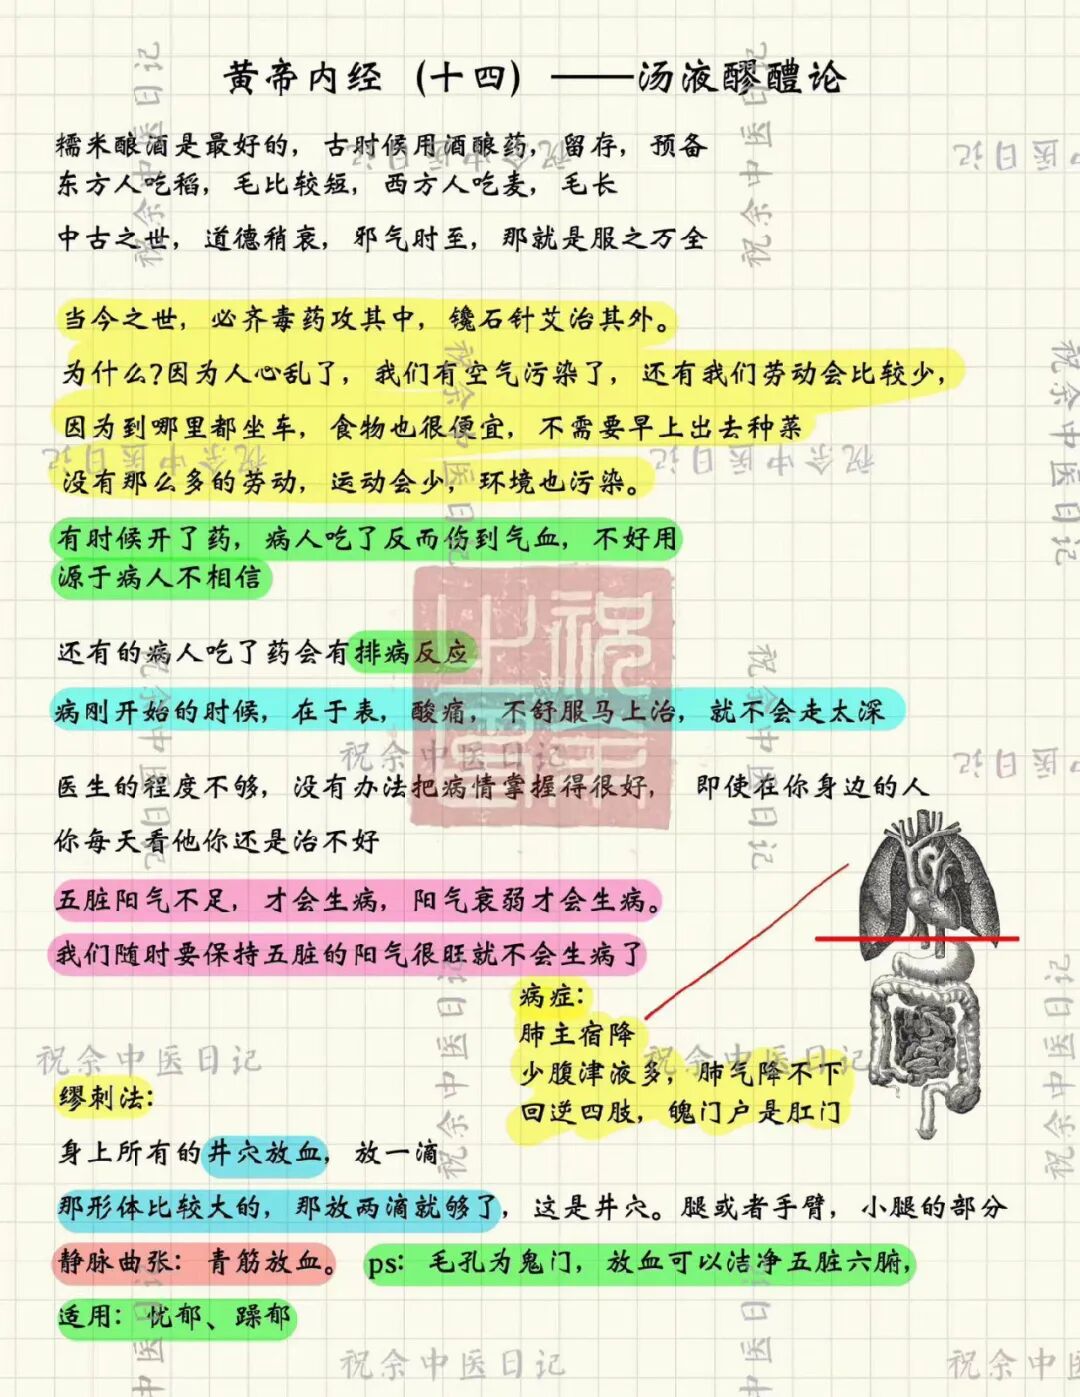 黄帝内经（十四）——汤液醪醴论
糯米酿酒是最好的，古时候用酒酿药，留存，预备
东方人吃稻，毛比较短，西方人吃麦，毛长
中古之世，道德稍衰，邪气时至，那就是服之万全
当今之世，必齐毒药攻其中，镵石针艾治其外。
为什么?因为人心乱了，我们有空气污染了，还有我们劳动会比较少，
因为到哪里都坐车，食物也很便宜，不需要早上出去种菜
没有那么多的劳动，运动会少，环境也污染。
有时候开了药，病人吃了反而伤到气血，不好用
源于病人不相信
还有的病人吃了药会有排病反应
病刚开始的时候，在于表，酸痛，不舒服马上治，就不会走太深
医生的程度不够，没有办法把病情掌握得很好， 即使在你身边的人
你每天看他你还是治不好
五脏阳气不足，才会生病，阳气衰弱才会生病。
我们随时要保持五脏的阳气很旺就不会生病了
病症：
肺主宿降
少腹津液多，肺气降不下
回逆四肢，魄门户是肛门
缪刺法：
身上所有的井穴放血，放一滴
那形体比较大的，那放两滴就够了，这是井穴。腿或者手臂，小腿的部分
静脉曲张：青筋放血。 ps：毛孔为鬼门，放血可以洁净五脏六腑，
适用：忧郁、躁郁
祝余中医日记